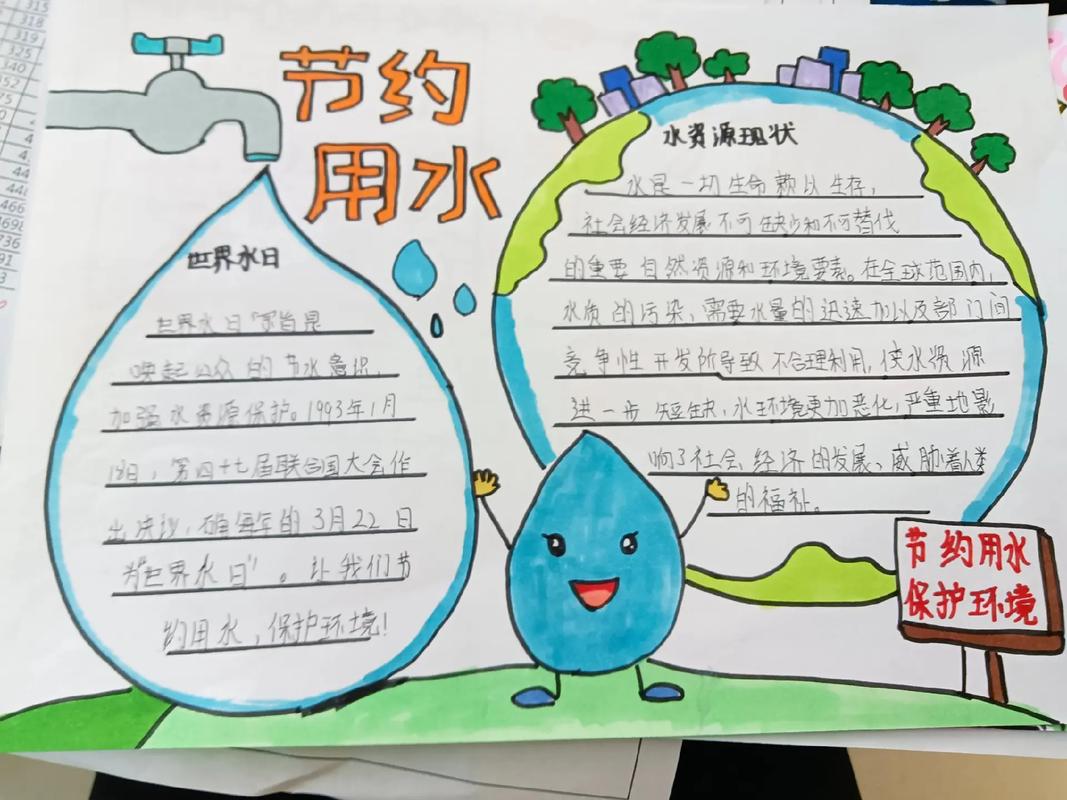 节约
用水
世界水日
世界水日宗旨是
唤起公众的节水意识,
加强水资源保护。1993年1月
18日,第四十七届联合国大会作
出决议,确每年的3月22日
为"世界水日"。让我们节
约用水,保护环境!
水资源现状
水是一切生命赖以生存,
社会经济发展不可缺少和不可替代
的重要自然资源和环境要素。在全球范围内,
水质的污染、需要水量的迅速加以及部门间
竞争性开发所导致不合理利用,使水资源
进一步短缺,水环境更加恶化,严重地影
响了社会经济的发展、威胁着人类
的福祉。
节约用水
保护环境
315
318
319
325
340